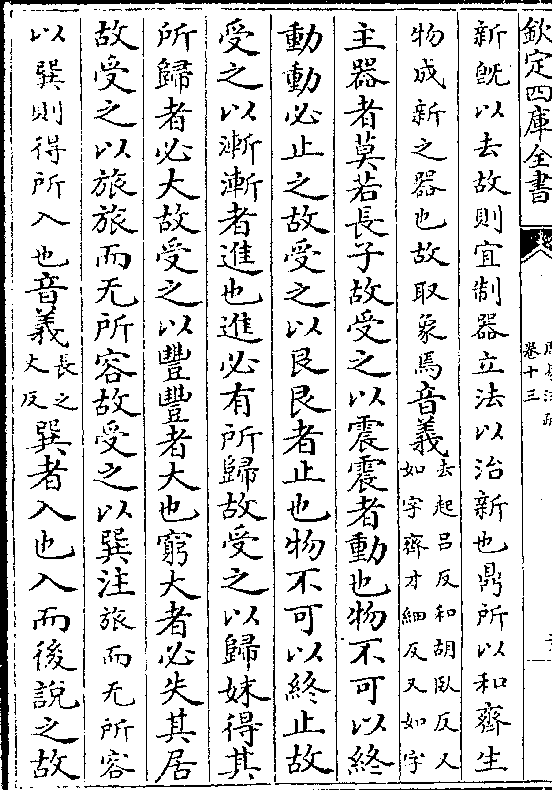 欽定四庫全書
卷十三
新既以去故則宜制器立法以治新也鼎所以和齊生
物成新之器也故取象焉音義去起呂反和胡臥反又如字齊才細反又如字
主器者莫若長子故受之以震震者動也物不可以終
動動必止之故受之以艮艮者止也物不可以終止故
受之以漸漸者進也進必有所歸故受之以歸妹得其
所歸者必大故受之以豐豐者大也窮大者必失其居
故受之以旅旅而无所容故受之以巽注旅而无所容
以巽則得所入也音義長之丈反巽者入也入而後說之故